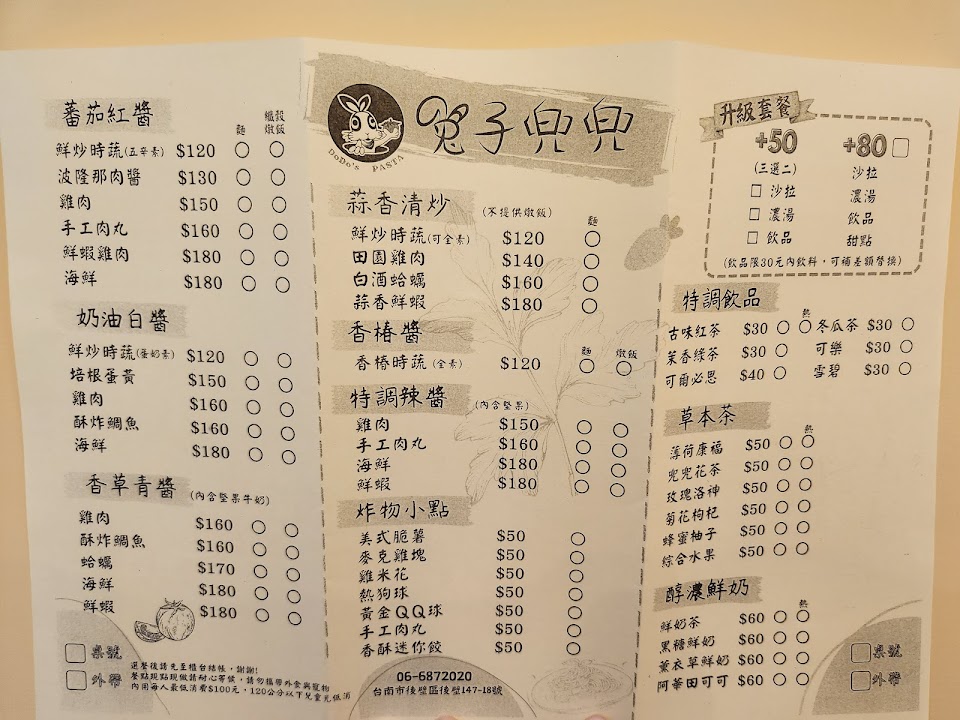 蕃茄紅醬
麵 纖穀燉飯
鮮炒時蔬(五辛素) $120 ○ ○
波隆那肉醬 $130 ○ ○
雞肉 $150 ○ ○
手工肉丸 $160 ○ ○
鮮蝦雞肉 $180 ○ ○
海鮮 $180 ○ ○
奶油白醬
鮮炒時蔬(蛋奶素) $120 ○ ○
培根蛋黃 $150 ○ ○
雞肉 $160 ○ ○
酥炸鯛魚 $160 ○ ○
海鮮 $180 ○ ○
香草青醬 (內含堅果牛奶)
雞肉 $160 ○ ○
酥炸鯛魚 $160 ○ ○
蛤蠣 $170 ○ ○
海鮮 $180 ○ ○
鮮蝦 $180 ○ ○
□ 桌號
□ 外帶
選餐後請先至櫃台結帳，謝謝!
餐點現點現做請耐心等候，請勿攜帶外食與寵物
內用每人最低消費$100元，120公分以下兒童免低消
DoDo's PASTA
兔子兜兜
蒜香清炒 (不提供燉飯)
麵
鮮炒時蔬(可全素) $120 ○
田園雞肉 $140 ○
白酒蛤蠣 $160 ○
蒜香鮮蝦 $180 ○
香椿醬
麵 燉飯
香椿時蔬(全素) $120 ○ ○
特調辣醬 (內含堅果)
雞肉 $150 ○ ○
手工肉丸 $160 ○ ○
海鮮 $180 ○ ○
鮮蝦 $180 ○ ○
炸物小點
美式脆薯 $50 ○
麥克雞塊 $50 ○
雞米花 $50 ○
熱狗球 $50 ○
黃金QQ球 $50 ○
手工肉丸 $50 ○
香酥迷你餃 $50 ○
06-6872020
台南市後壁區後壁147-18號
升級套餐
+50
(三選二)
□ 沙拉
□ 濃湯
□ 飲品
+80 □
沙拉
濃湯
飲品
甜點
(飲品限30元內飲料，可補差額替換)
特調飲品
熱
古味紅茶 $30 ○ ○ 冬瓜茶 $30 ○
茉香綠茶 $30 ○ 可樂 $30 ○
可爾必思 $40 ○ 雪碧 $30 ○
草本茶
熱
薄荷康福 $50 ○ ○
兜兜花茶 $50 ○ ○
玫瑰洛神 $50 ○ ○
菊花枸杞 $50 ○ ○
蜂蜜柚子 $50 ○ ○
綜合水果 $50 ○ ○
醇濃鮮奶
熱
鮮奶茶 $60 ○ ○
黑糖鮮奶 $60 ○ ○
薰衣草鮮奶 $60 ○ ○
阿華田可可 $60 ○ ○
□ 桌號
□ 外帶